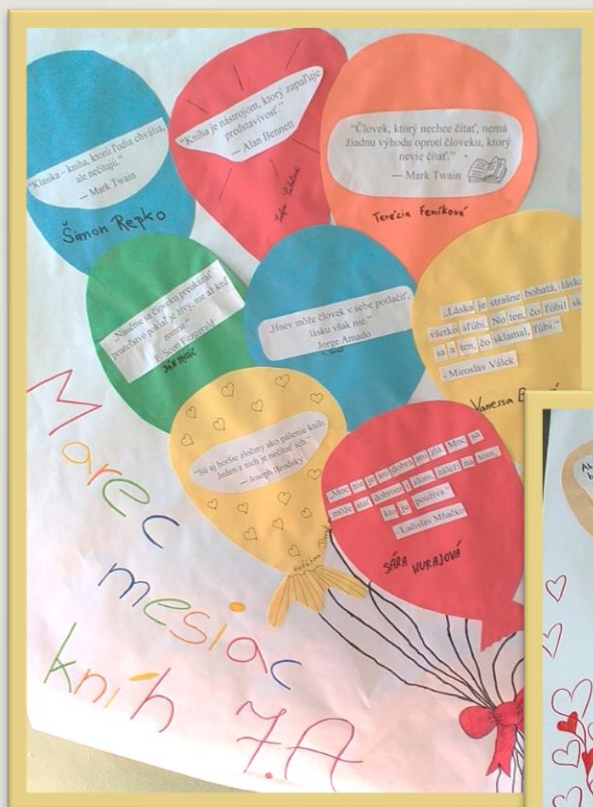 "Klasika – kniha, ktorú ľudia chvália,
ale nečítajú."
— Mark Twain
Šimon Repko
"Kniha je nástrojom, ktorý zapaľuje
predstavivosť."
— Alan Bennett
"Človek, ktorý nechce čítať, nemá
žiadnu výhodu oproti človeku, ktorý
nevie čítať."
— Mark Twain
Terézia Feníková
"Naučme sa človeku preukázať
priateľstvo pokiaľ je živý, nie až keď
zomrie"
F. Scott Fitzgerald
„Hnev môže človek v sebe potlačiť,
lásku však nie."
Jorge Amado
„Láska je strašne bohatá, láska
všetko sľúbi. No ten, čo ľúbil
sa a ten, čo sklamal, ľúbi."
- Miroslav Válek
Vanessa
"Sú aj horšie zločiny ako pálenie kníh.
Jeden z nich je nečítať ich."
— Joseph Brodsky
„Moc nie je ani dobrá ani zlá. Moc sa
môže stať dobrom i zlom, záleží na tom,
kto ju používa."
- Ladislav Mňačko
SÁRA HURAJOVÁ
Marec
mesiac
kníh 7.A